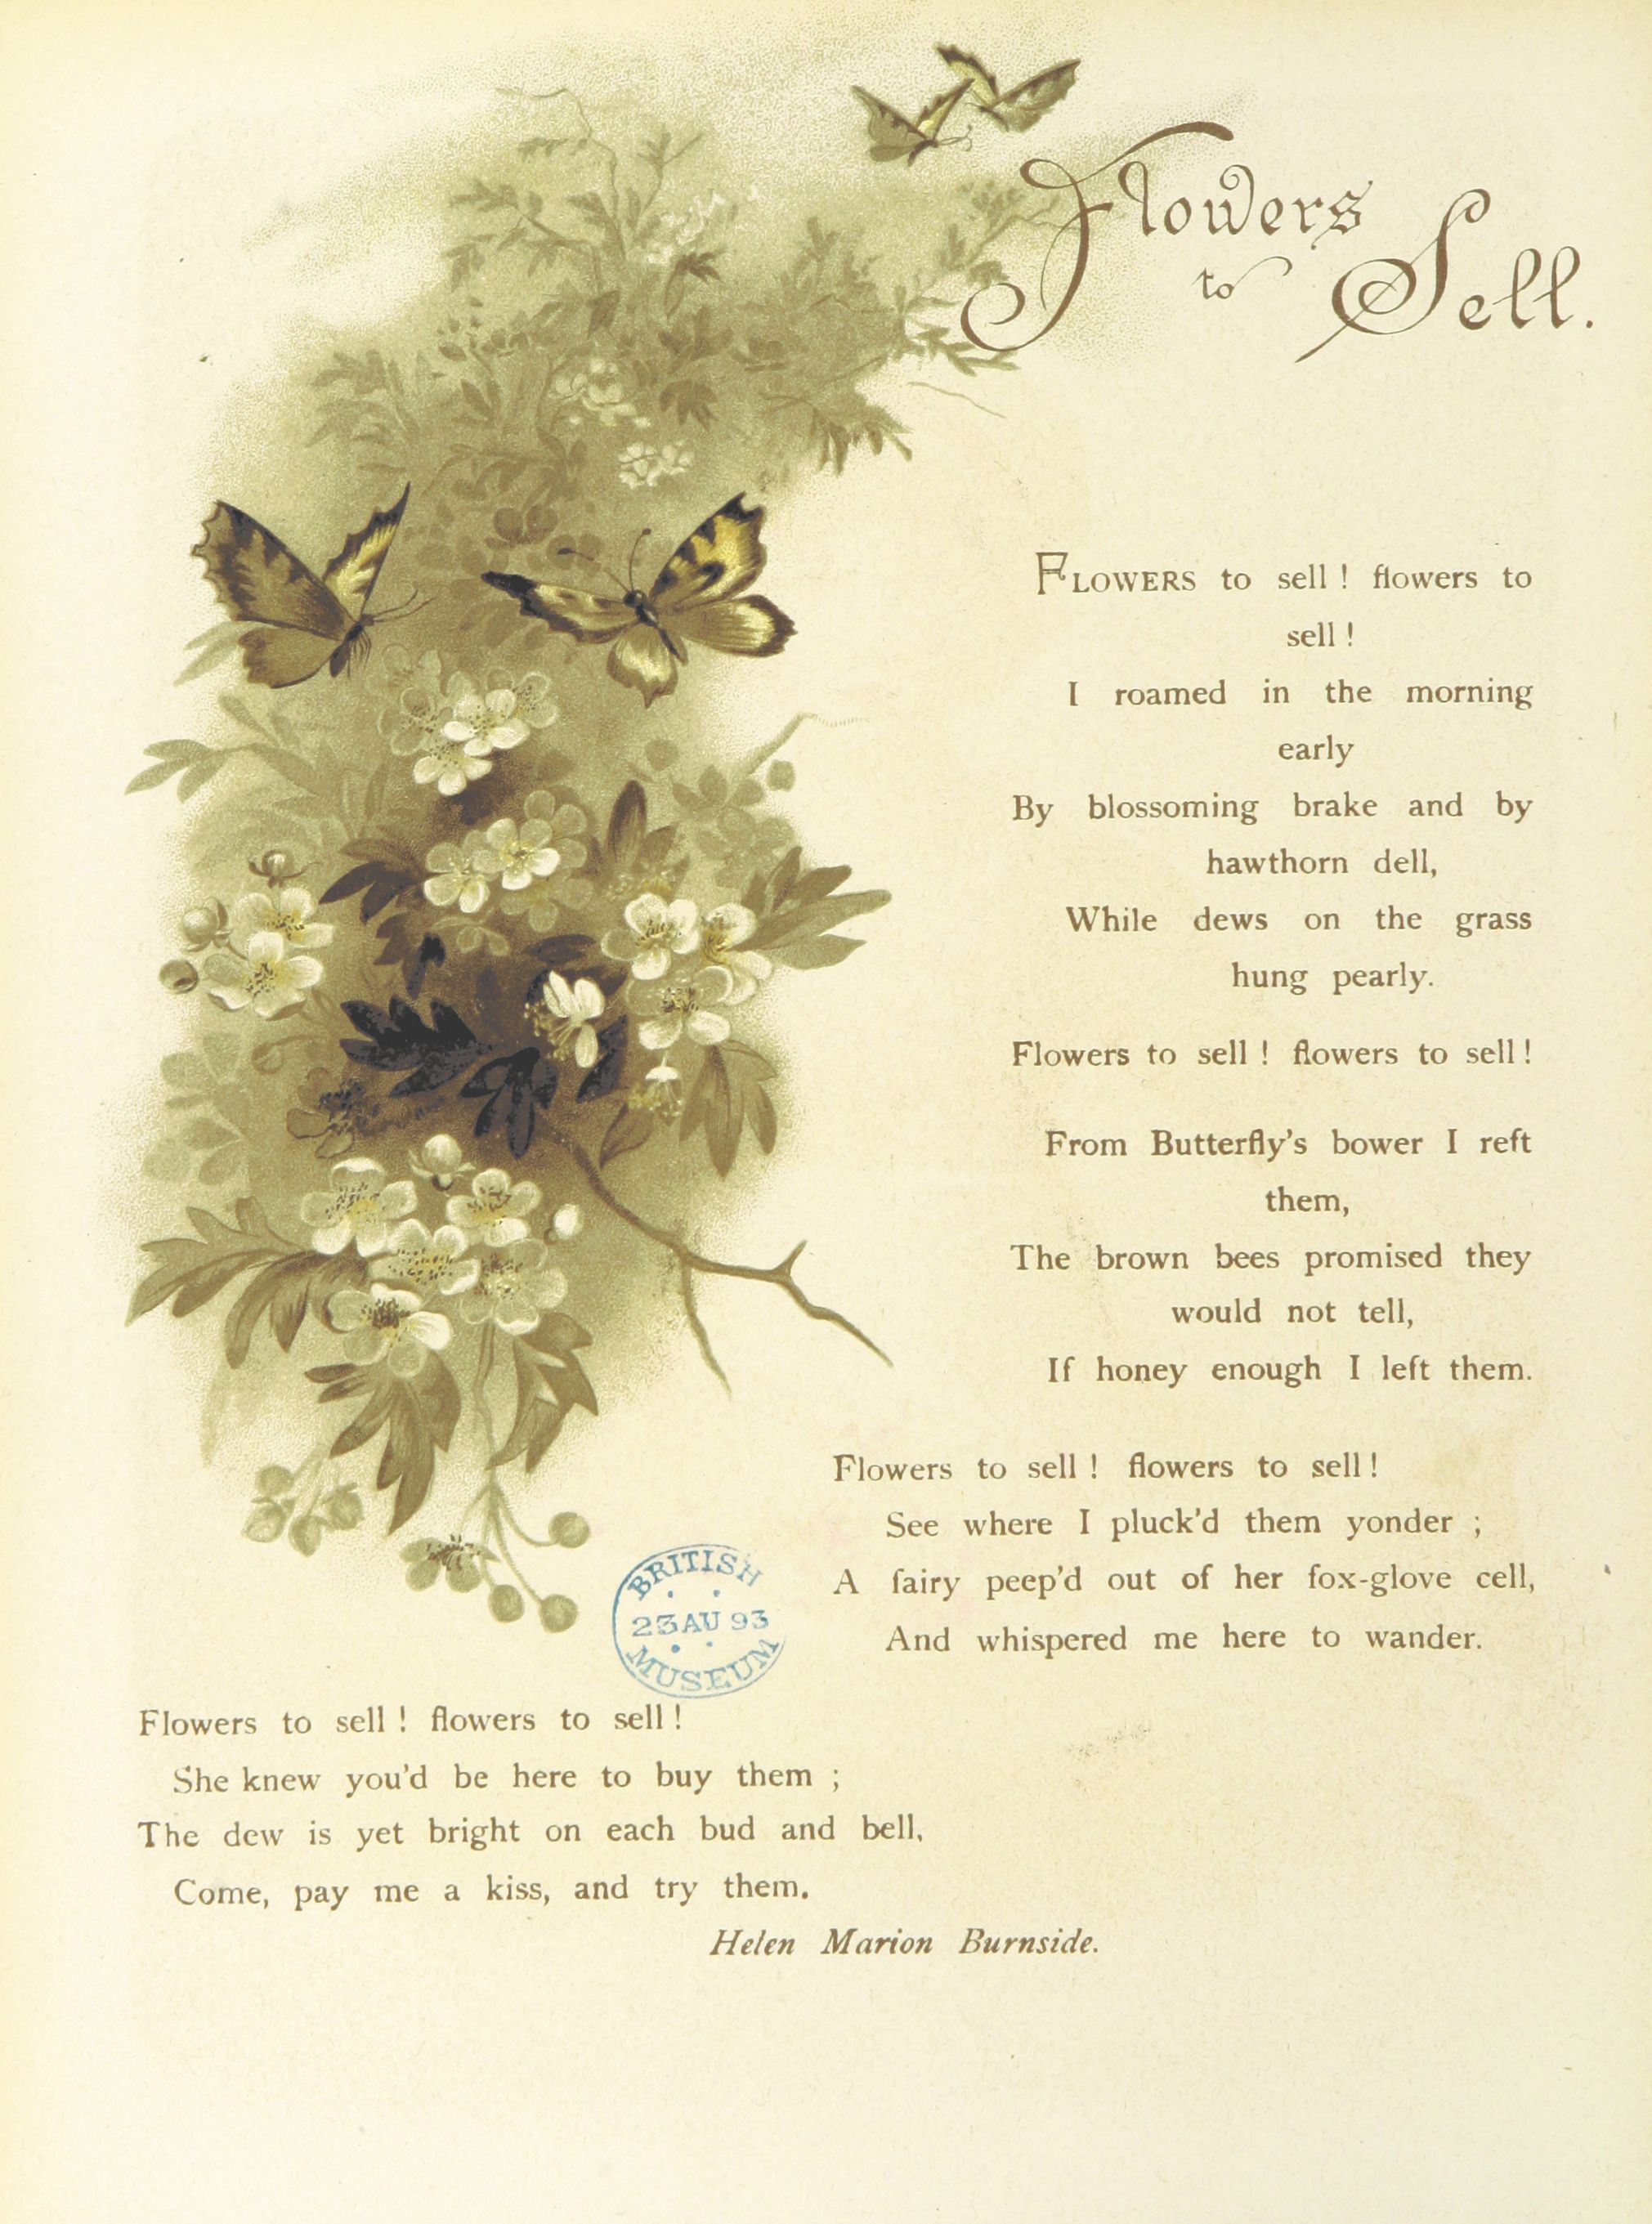 Flowers
to Sell.
FLOWERS to sell! flowers to
sell!
I roamed in the morning
early
By blossoming brake and by
hawthorn dell,
While dews on the grass
hung pearly.
Flowers to sell! flowers to sell!
From Butterfly's bower I reft
them,
The brown bees promised they
would not tell,
If honey enough I left them.
Flowers to sell! flowers to sell!
See where I pluck'd them yonder;
A fairy peep'd out of her fox-glove cell,
And whispered me here to wander.
BRITISH
23 AU 93
MUSEUM
Flowers to sell! flowers to sell!
She knew you'd be here to buy them;
The dew is yet bright on each bud and bell,
Come, pay me a kiss, and try them.
Helen Marion Burnside.